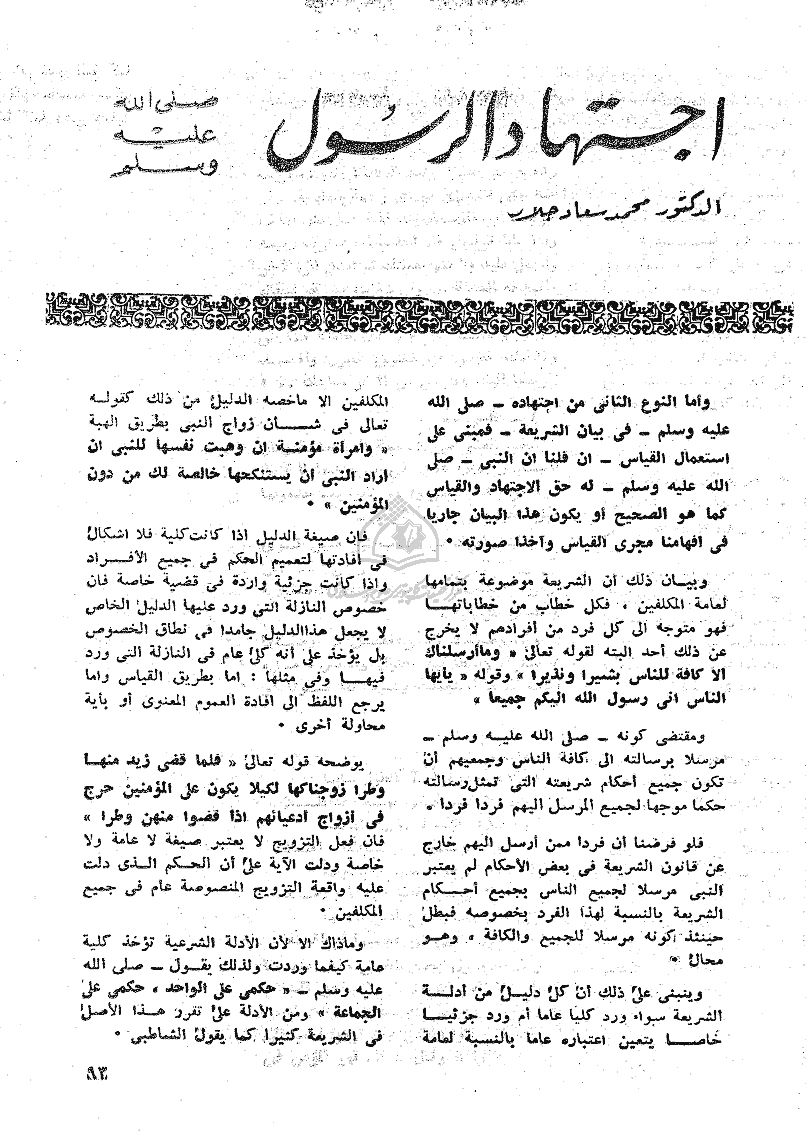 اجتهاد الرسول
صلى الله
عليه
وسلم
الدكتور محمد سعاد جلال
وأما النوع الثانى من اجتهاده ــ صلى الله
عليه وسلم ــ فى بيان الشريعة ــ فمبنى على
استعمال القياس ــ ان قلنا ان النبى ــ صلى
الله عليه وسلم ــ له حق الاجتهاد والقياس
كما هو الصحيح أو يكون هذا البيان جاريا
فى افهامنا مجرى القياس وآخذا صورته ٠
وبيـان ذلك أن الشريعة موضوعة بتمامها
لعامة المكلفين ، فكل خطاب من خطاباتهـا
فهو متوجه الى كل فرد من أفرادهم لا يخرج
عن ذلك أحد البته لقوله تعالى « وماأرسلناك
الا كافة للناس بشيرا ونذيرا » وقوله « يأيها
الناس انى رسول الله اليكم جميعا »
ومقتضى كونه ــ صلى الله عليـه وسلم ــ
مرسلا برسالته الى كافة الناس وجميعهم أن
تكون جميع أحكام شريعته التى تمثل رسالته
حكما موجها لجميع المرسل اليهم فردا فردا ٠
فلو فرضنا أن فردا ممن أرسل اليهم خارج
عن قانون الشريعة فى بعض الأحكام لم يعتبر
النبى مرسلا لجميع الناس بجميع أحـكام
الشريعة بالنسبة لهذا الفرد بخصوصه فبطل
حينئذ كونه مرسلا للجميع والكافة ، وهـو
محال ٠
وينبنى على ذلك أن كل دليـل من أدلـة
الشريعة سواء ورد كليا عاما أم ورد جزئيـا
خاصـا يتعين اعتباره عاما بالنسبة لعامة
المكلفين الا ماخصه الدليل من ذلك كقولـه
تعالى فى شـأن زواج النبى بطريق الهبة
« وامرأة مؤمنـة ان وهبت نفسها للنبى ان
اراد النبى أن يستنكحها خالصة لك من دون
المؤمنين » ٠
فان صيغة الدليل اذا كانت كلية فلا اشكال
فى افادتها لتعميم الحكم فى جميع الأفـراد
واذا كانت جزئية واردة فى قضية خاصة فان
خصوص النازلة التى ورد عليها الدليل الخاص
لا يجعل هذاالدليل جامدا فى نطاق الخصوص
بل يؤخذ على أنه كلى عام فى النازلة التى ورد
فيهـا وفى مثلها : اما بطريق القياس واما
يرجع اللفظ الى افادة العموم المعنوى أو بأية
محاولة أخرى ٠
يوضحه قوله تعالى « فلما قضى زيد منهـا
وطرا زوجناكها لكيلا يكون على المؤمنين حرج
فى أزواج أدعيائهم اذا قضوا منهن وطرا »
فان فعل التزويج لا يعتبر صيغة لا عامة ولا
خاصة ودلت الآية على أن الحكم الـذى دلت
عليه واقعة التزويج المنصوصة عام فى جميع
المكلفين ٠
وماذاك الا لأن الأدلة الشرعية تؤخذ كلية
عامة كيفما وردت ولذلك يقـول ــ صلى الله
عليه وسلم ــ « حكمى على الواحد ، حكمى على
الجماعة » ومن الأدلة على تقرر هـذا الأصل
فى الشريعة كثيرا كما يقول الشاطبى ٠
٩٣